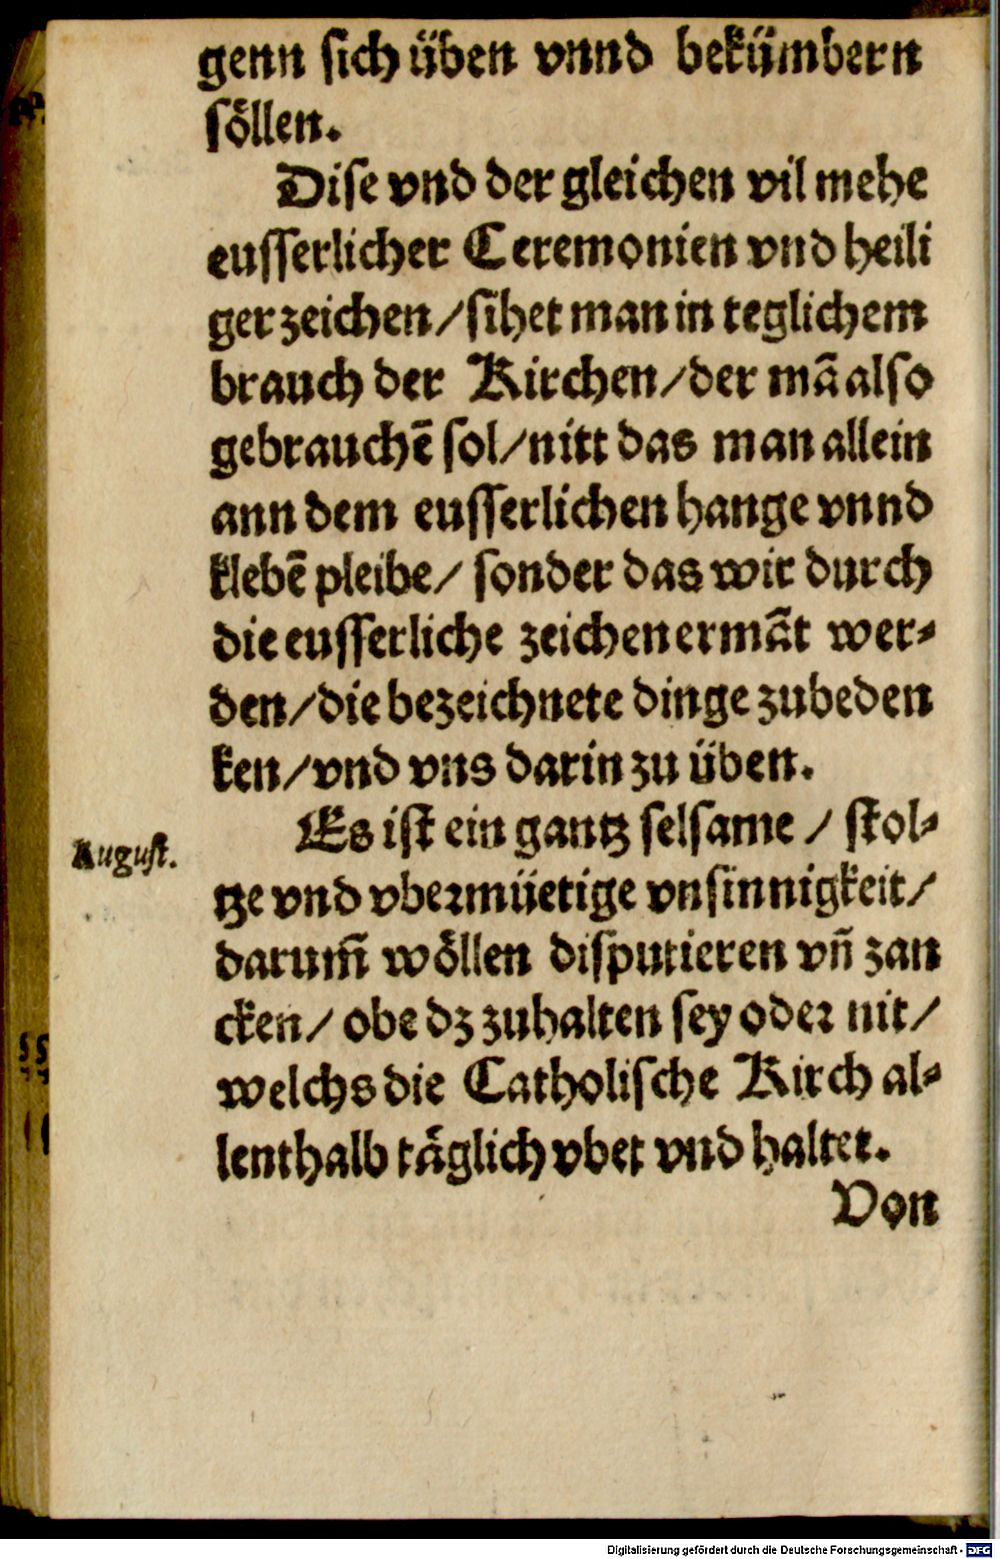 genn sich üben vnnd bekümbern
söllen.
Dise vnd der gleichen vil mehe
eusserlicher Ceremonien vnd heili
ger zeichen/sihet man in teglichem
brauch der Kirchen/der mā also
gebrauchē sol/nitt das man allein
ann dem eusserlichen hange vnnd
klebē pleibe/ sonder das wir durch
die eusserliche zeichen ermāt wer-
den/die bezeichnete dinge zubeden
ken/vnd vns darin zu üben.
August.
Es ist ein gantz selsame / stol-
tze vnd vbermüetige vnsinnigkeit/
darum̄ wöllen disputieren vn̄ zan
cken/ obe dz zuhalten sey oder nit/
welchs die Catholische Kirch al-
lenthalb täglich vbet vnd haltet.
Von
Digitalisierung gefördert durch die Deutsche Forschungsgemeinschaft - DFG